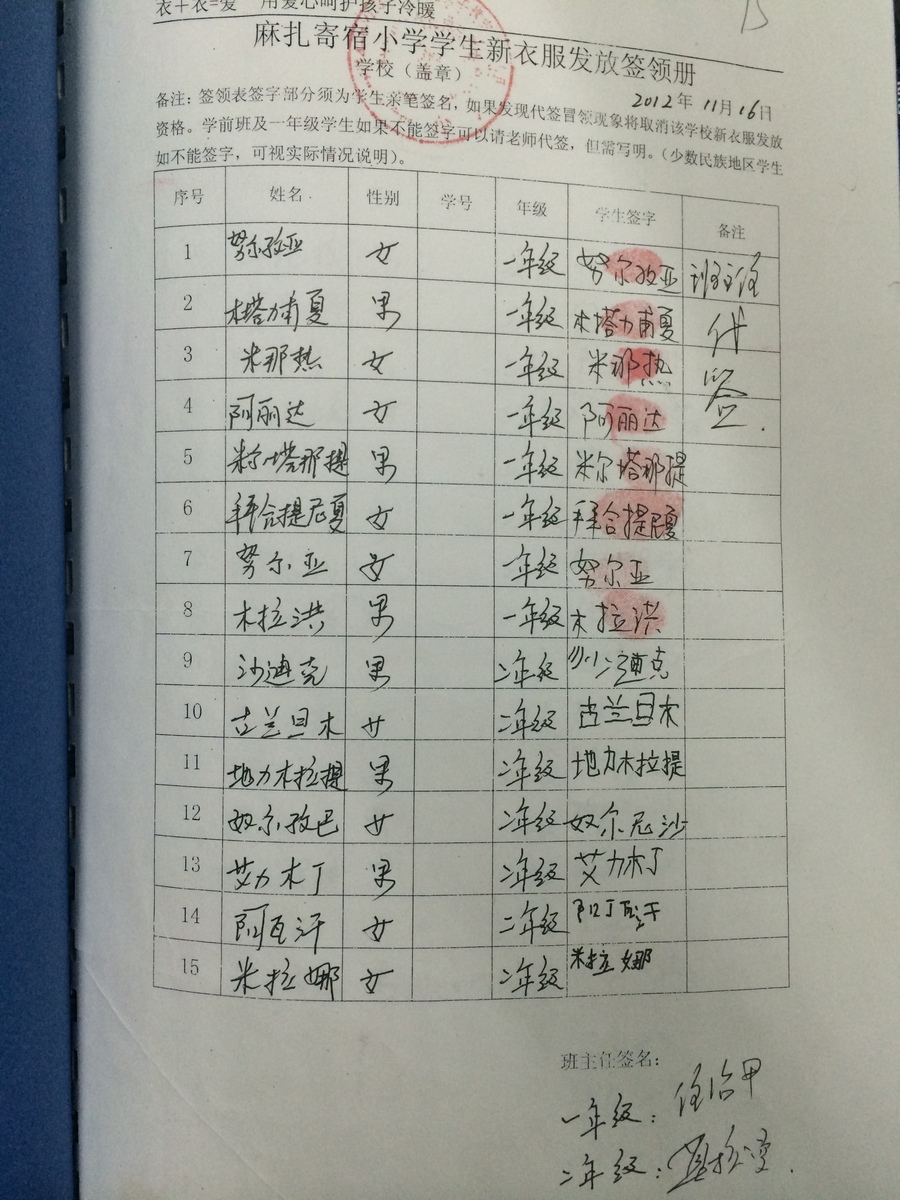 衣+衣=爱 用爱心呵护孩子冷暖
麻扎寄宿小学学生新衣服发放签领册
学校（盖章）
2012年 11月16日
备注：签领表签字部分须为学生亲笔签名，如果发现代签冒领现象将取消该学校新衣服发放
资格。学前班及一年级学生如果不能签字可以请老师代签，但需写明。（少数民族地区学生
如不能签字，可视实际情况说明）。
序号 姓名 性别 学号 年级 学生签字 备注
1 努尔孜亚 女 一年级 努尔孜亚 班主任
2 木塔力甫夏 男 一年级 木塔力甫夏 代
3 米那热 女 一年级 米那热 签.
4 阿丽达 女 一年级 阿丽达
5 米尔塔那提 男 一年级 米尔塔那提
6 拜合提尼夏 女 一年级 拜合提尼夏
7 努尔亚 女 一年级 努尔亚
8 木拉洪 男 一年级 木拉洪
9 沙迪克 男 二年级 沙迪克
10 古兰旦木 女 二年级 古兰旦木
11 地力木拉提 男 二年级 地力木拉提
12 奴尔孜巴 女 二年级 奴尔尼沙
13 艾力木丁 男 二年级 艾力木丁
14 阿瓦汗 女 二年级 阿瓦汗
15 米拉娜 女 二年级 米拉娜
班主任签名：
一年级：
二年级：